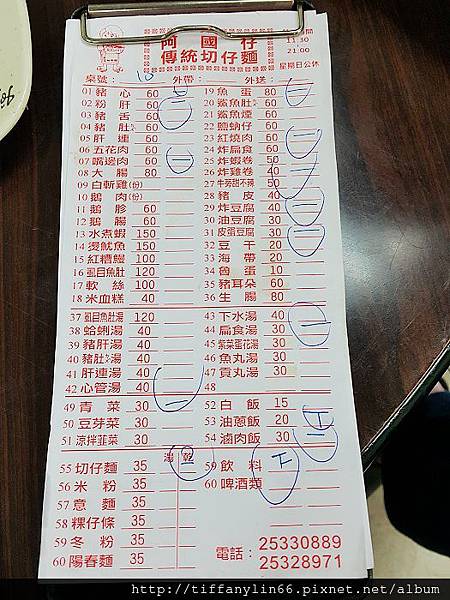 阿國仔
傳統切仔麵
時間
11:30
21:00
星期日公休
桌號： 外帶： 外送：
01 豬心 60
02 粉肝 60
03 豬舌 60
04 豬肚 60
05 肝連 60
06 五花肉 60
07 嘴邊肉 60
08 大腸 80
09 白斬雞(份)
10 鵝肉(份)
11 鵝胗 60
12 鵝腸 60
13 水煮蝦 150
14 燙魷魚 150
15 紅糟鰻 100
16 虱目魚肚 120
17 軟絲 100
18 米血糕 40
19 魚蛋 80
20 鯊魚肚 60
21 鯊魚煙 60
22 鹽蚋仔 60
23 紅燒肉 60
24 炸扁食 60
25 炸蝦卷 50
26 炸雞卷 40
27 牛蒡甜不辣 50
28 豬皮 40
29 炸豆腐 40
30 油豆腐 30
31 皮蛋豆腐 30
32 豆干 20
33 海帶 20
34 魯蛋 10
35 豬耳朵 60
36 生腸 80
37 虱目魚肚湯 120
38 蛤蜊湯 40
39 豬肝湯 40
40 豬肚湯 40
41 肝連湯 40
42 心管湯 40
43 下水湯 40
44 扁食湯 30
45 紫菜蛋花湯 30
46 魚丸湯 30
47 貢丸湯 30
48
49 青菜 30
50 豆芽菜 30
51 涼拌韮菜 30
52 白飯 15
53 油蔥飯 20
54 滷肉飯 30
湯 乾
55 切仔麵 35
56 米粉 35
57 意麵 35
58 粿仔條 35
59 冬粉 35
60 陽春麵 35
59 飲料
60 啤酒類
電話： 25330889
25328971
http://tiffanylin66.pixnet.net/album